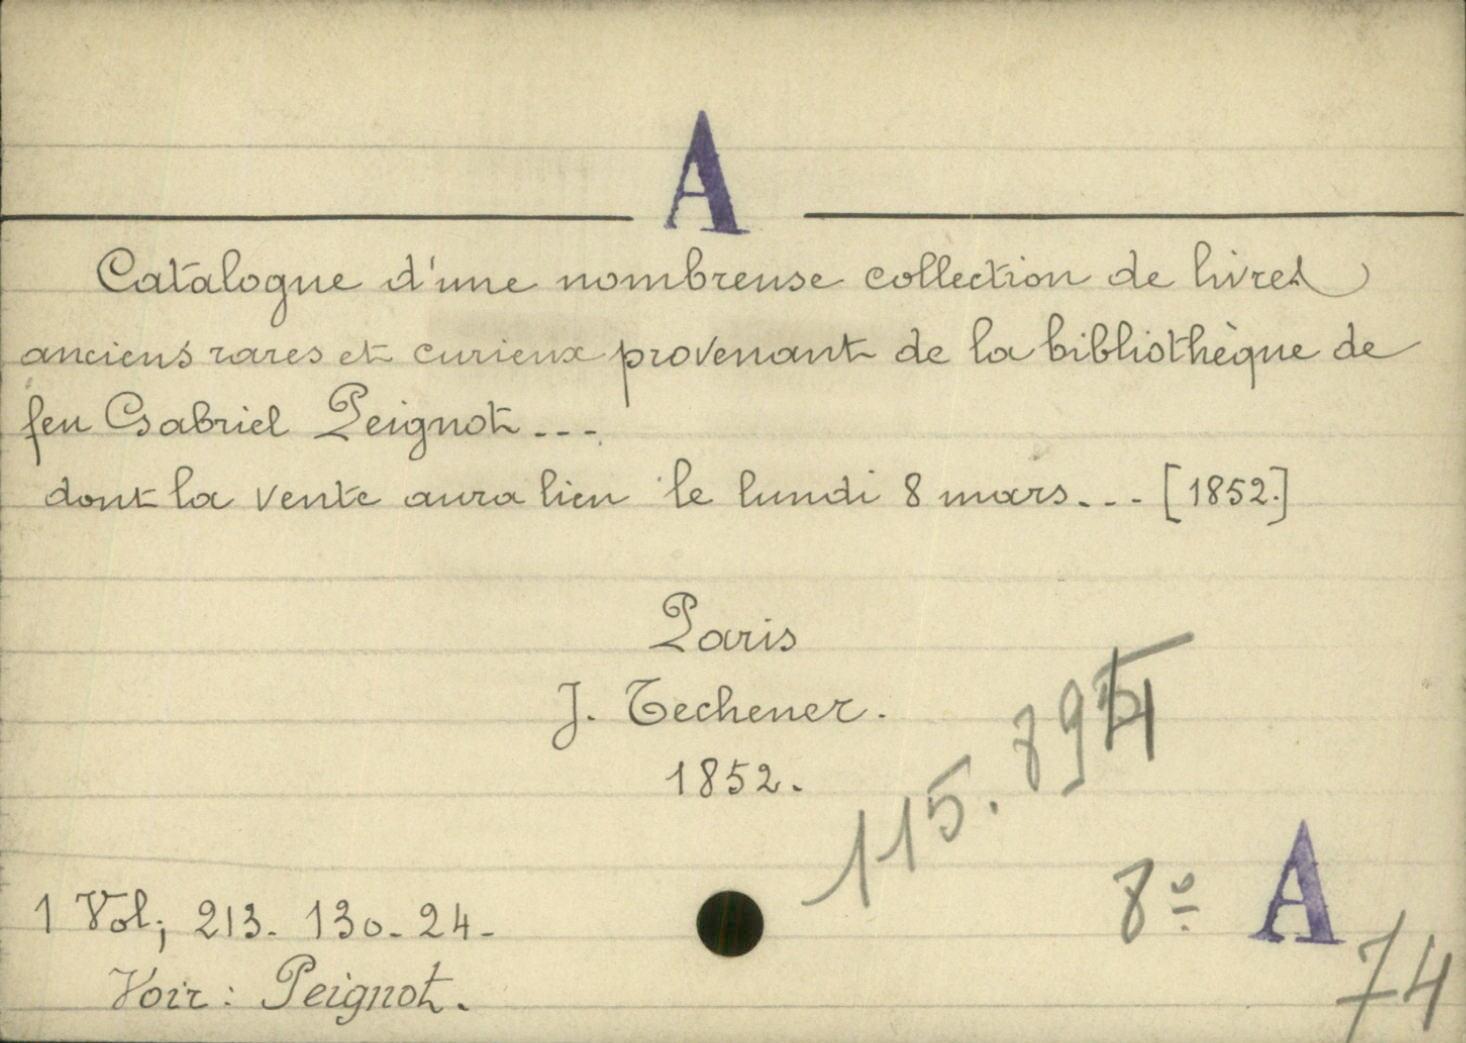 A
Catalogue d'une nombreuse collection de livres
anciens rares et curieux provenant de la bibliothèque de
feu Gabriel Peignot ---
dont la vente aura lieu le lundi 8 mars... [1852.]
Paris
J. Techener.
1852.
115.
1 Vol; 213. 130. 24.
8º A
74
Voir: Peignot.